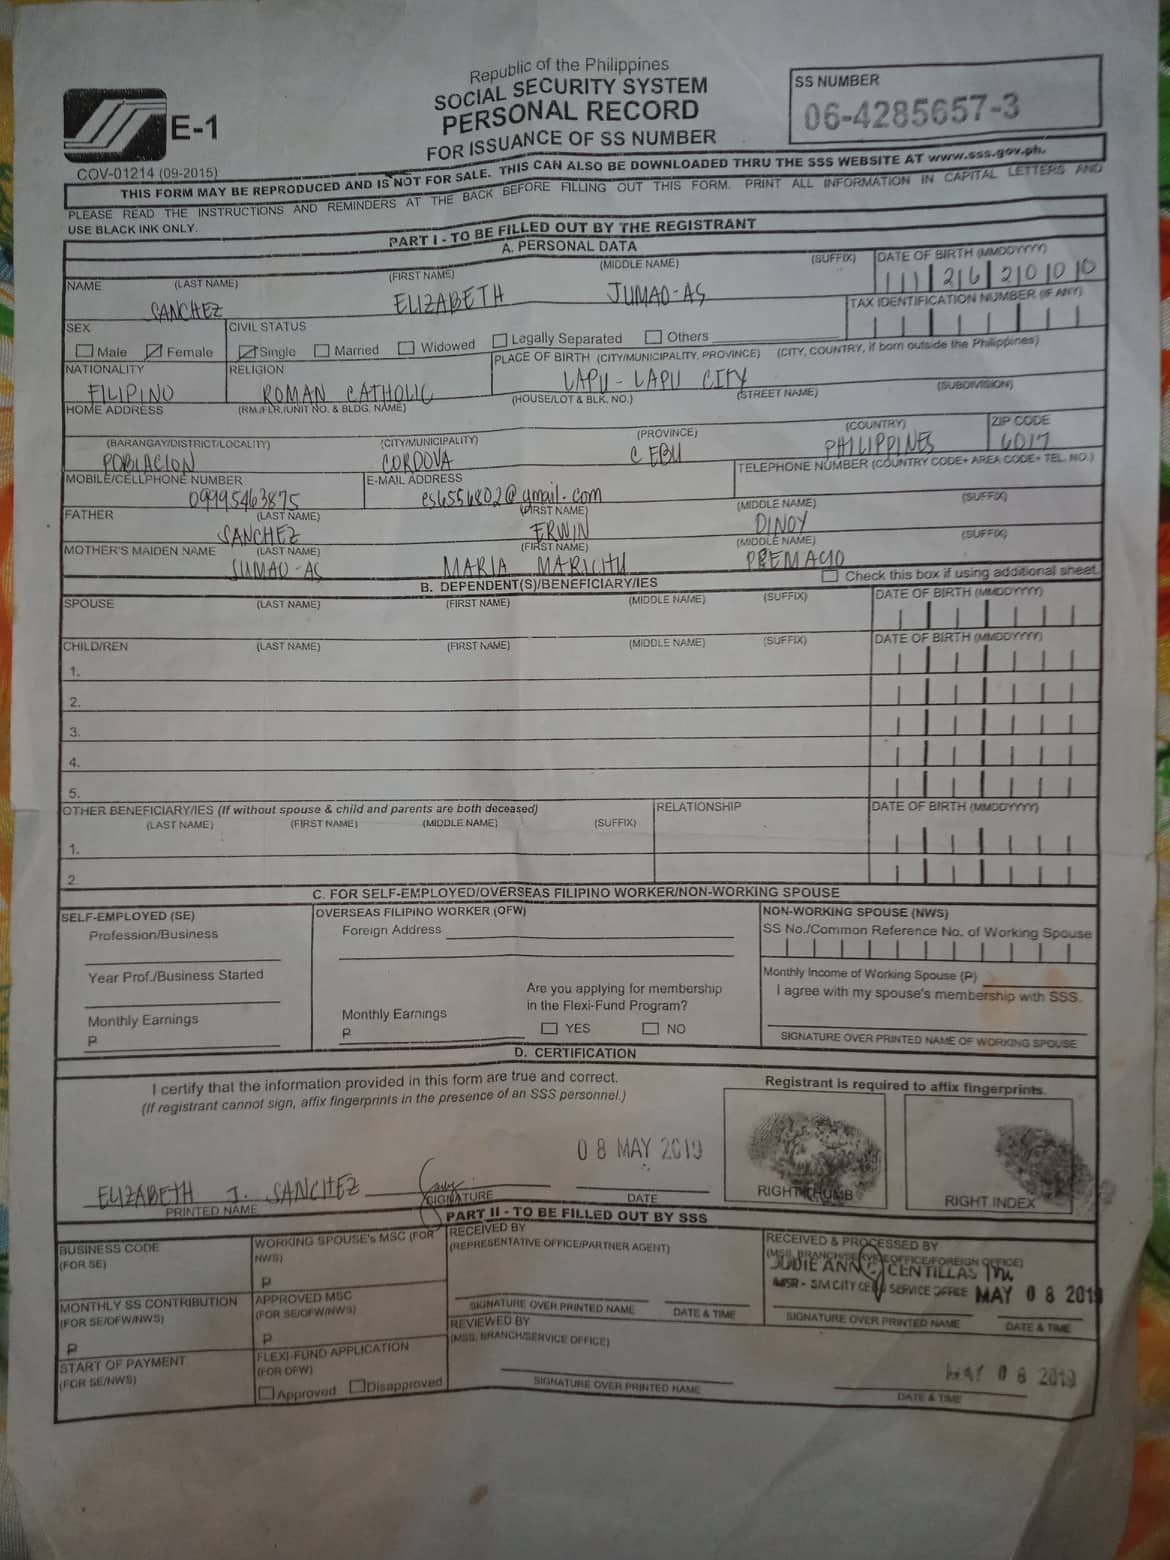 Republic of the Philippines
SOCIAL SECURITY SYSTEM
PERSONAL RECORD
FOR ISSUANCE OF SS NUMBER
E-1
COV-01214 (09-2015)
SS NUMBER
06-4285657-3
THIS FORM MAY BE REPRODUCED AND IS NOT FOR SALE. THIS CAN ALSO BE DOWNLOADED THRU THE SSS WEBSITE AT www.sss.gov.ph.
PLEASE READ THE INSTRUCTIONS AND REMINDERS AT THE BACK BEFORE FILLING OUT THIS FORM. PRINT ALL INFORMATION IN CAPITAL LETTERS AND
USE BLACK INK ONLY.
PART I - TO BE FILLED OUT BY THE REGISTRANT
A. PERSONAL DATA
NAME (LAST NAME) (FIRST NAME) (MIDDLE NAME) (SUFFIX) DATE OF BIRTH (MMDDYYYY)
SANCHEZ ELIZABETH JUMAO-AS
TAX IDENTIFICATION NUMBER (IF ANY)
SEX CIVIL STATUS
Male Female Single Married Widowed Legally Separated Others
NATIONALITY RELIGION PLACE OF BIRTH (CITY/MUNICIPALITY, PROVINCE) (CITY, COUNTRY, if born outside the Philippines)
FILIPINO ROMAN CATHOLIC LAPU-LAPU CITY
HOME ADDRESS (RM./FLR./UNIT NO. & BLDG. NAME) (HOUSE/LOT & BLK. NO.) (STREET NAME) (SUBDIVISION)
(BARANGAY/DISTRICT/LOCALITY) (CITY/MUNICIPALITY) (PROVINCE) (COUNTRY) ZIP CODE
POBLACION CORDOVA CEBU PHILIPPINES 6017
MOBILE/CELLPHONE NUMBER E-MAIL ADDRESS TELEPHONE NUMBER (COUNTRY CODE+ AREA CODE+ TEL. NO.)
09995463875 es6556802@gmail.com
FATHER (LAST NAME) (FIRST NAME) (MIDDLE NAME) (SUFFIX)
SANCHEZ ERWIN DINOY
MOTHER'S MAIDEN NAME (LAST NAME) (FIRST NAME) (MIDDLE NAME) (SUFFIX)
JUMAO-AS MARIA MARICHU
B. DEPENDENT(S)/BENEFICIARY/IES
Check this box if using additional sheet.
SPOUSE (LAST NAME) (FIRST NAME) (MIDDLE NAME) (SUFFIX) DATE OF BIRTH (MMDDYYYY)
CHILD/REN (LAST NAME) (FIRST NAME) (MIDDLE NAME) (SUFFIX) DATE OF BIRTH (MMDDYYYY)
1.
2.
3.
4.
5.
OTHER BENEFICIARY/IES (If without spouse & child and parents are both deceased) RELATIONSHIP DATE OF BIRTH (MMDDYYYY)
(LAST NAME) (FIRST NAME) (MIDDLE NAME) (SUFFIX)
1.
2.
C. FOR SELF-EMPLOYED/OVERSEAS FILIPINO WORKER/NON-WORKING SPOUSE
SELF-EMPLOYED (SE)
Profession/Business
Year Prof./Business Started
Monthly Earnings
₱
OVERSEAS FILIPINO WORKER (OFW)
Foreign Address
Monthly Earnings
₱
Are you applying for membership
in the Flexi-Fund Program?
YES NO
NON-WORKING SPOUSE (NWS)
SS No./Common Reference No. of Working Spouse
Monthly Income of Working Spouse (₱)
I agree with my spouse's membership with SSS.
SIGNATURE OVER PRINTED NAME OF WORKING SPOUSE
D. CERTIFICATION
I certify that the information provided in this form are true and correct.
(If registrant cannot sign, affix fingerprints in the presence of an SSS personnel.)
Registrant is required to affix fingerprints.
08 MAY 2019
ELIZABETH J. SANCHEZ
PRINTED NAME SIGNATURE DATE
RIGHT THUMB RIGHT INDEX
PART II - TO BE FILLED OUT BY SSS
BUSINESS CODE
(FOR SE)
WORKING SPOUSE's MSC (FOR
NWS)
₱
MONTHLY SS CONTRIBUTION
(FOR SE/OFW/NWS)
₱
APPROVED MSC
(FOR SE/OFW/NWS)
₱
START OF PAYMENT
(FOR SE/NWS)
FLEXI-FUND APPLICATION
(FOR OFW)
Approved Disapproved
RECEIVED BY
(REPRESENTATIVE OFFICE/PARTNER AGENT)
SIGNATURE OVER PRINTED NAME DATE & TIME
RECEIVED & PROCESSED BY
(MSS, BRANCH/SERVICE OFFICE/FOREIGN OFFICE)
JUDIE ANN CENTILLAS
MSR - SM CITY CEBU SERVICE OFFICE MAY 08 2019
SIGNATURE OVER PRINTED NAME DATE & TIME
REVIEWED BY
(MSS, BRANCH/SERVICE OFFICE)
MAY 08 2019
SIGNATURE OVER PRINTED NAME DATE & TIME